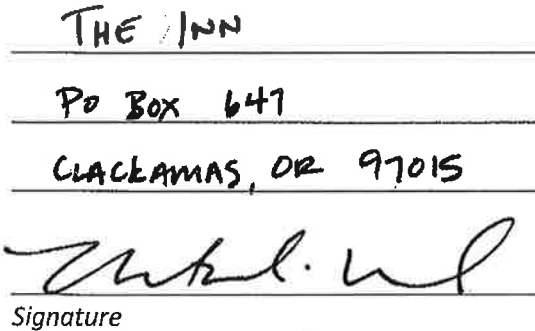 THE INN
PO BOX 647
CLACKAMAS, OR 97015
Signature